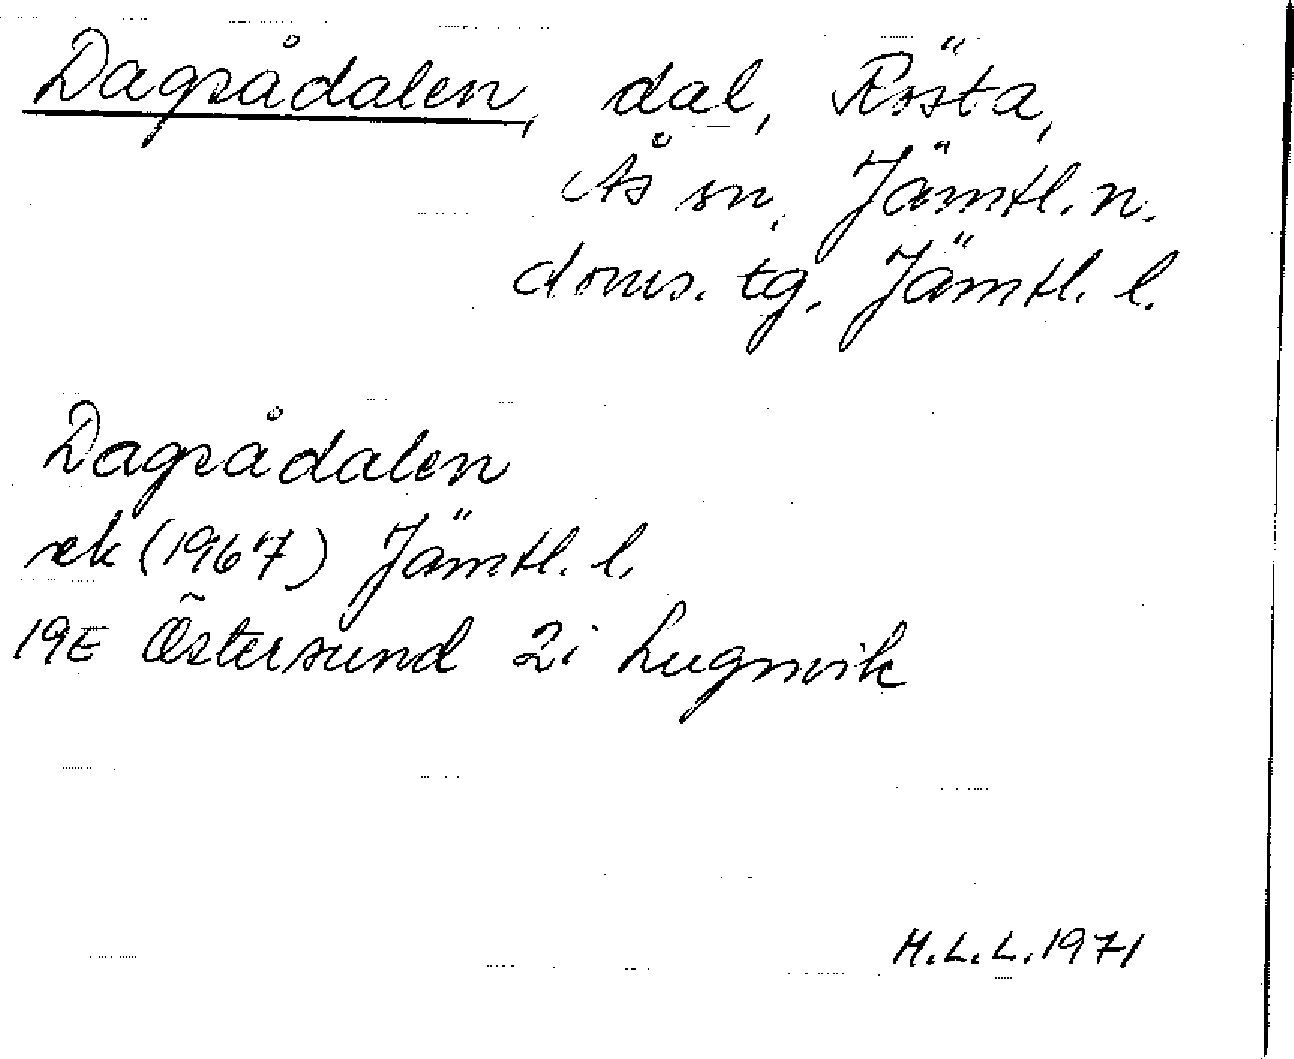 Dagsådalen, dal, Rösta,
Ås sn, Jämtl. n.
doms. tg, Jämtl. l.
Dagsådalen
ek (1967) Jämtl. l.
19E Östersund 2i Lugnvik
M.L.L. 1971